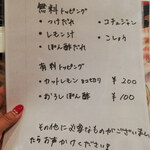 無料トッピング
・つけだれ ・コチュジャン
・レモン汁 ・こしょう
・ぽん酢だれ
有料トッピング
・カットレモン ¥200
・おろしぽん酢 ¥100
その他に必要なものがございまし
たらお声がけください!